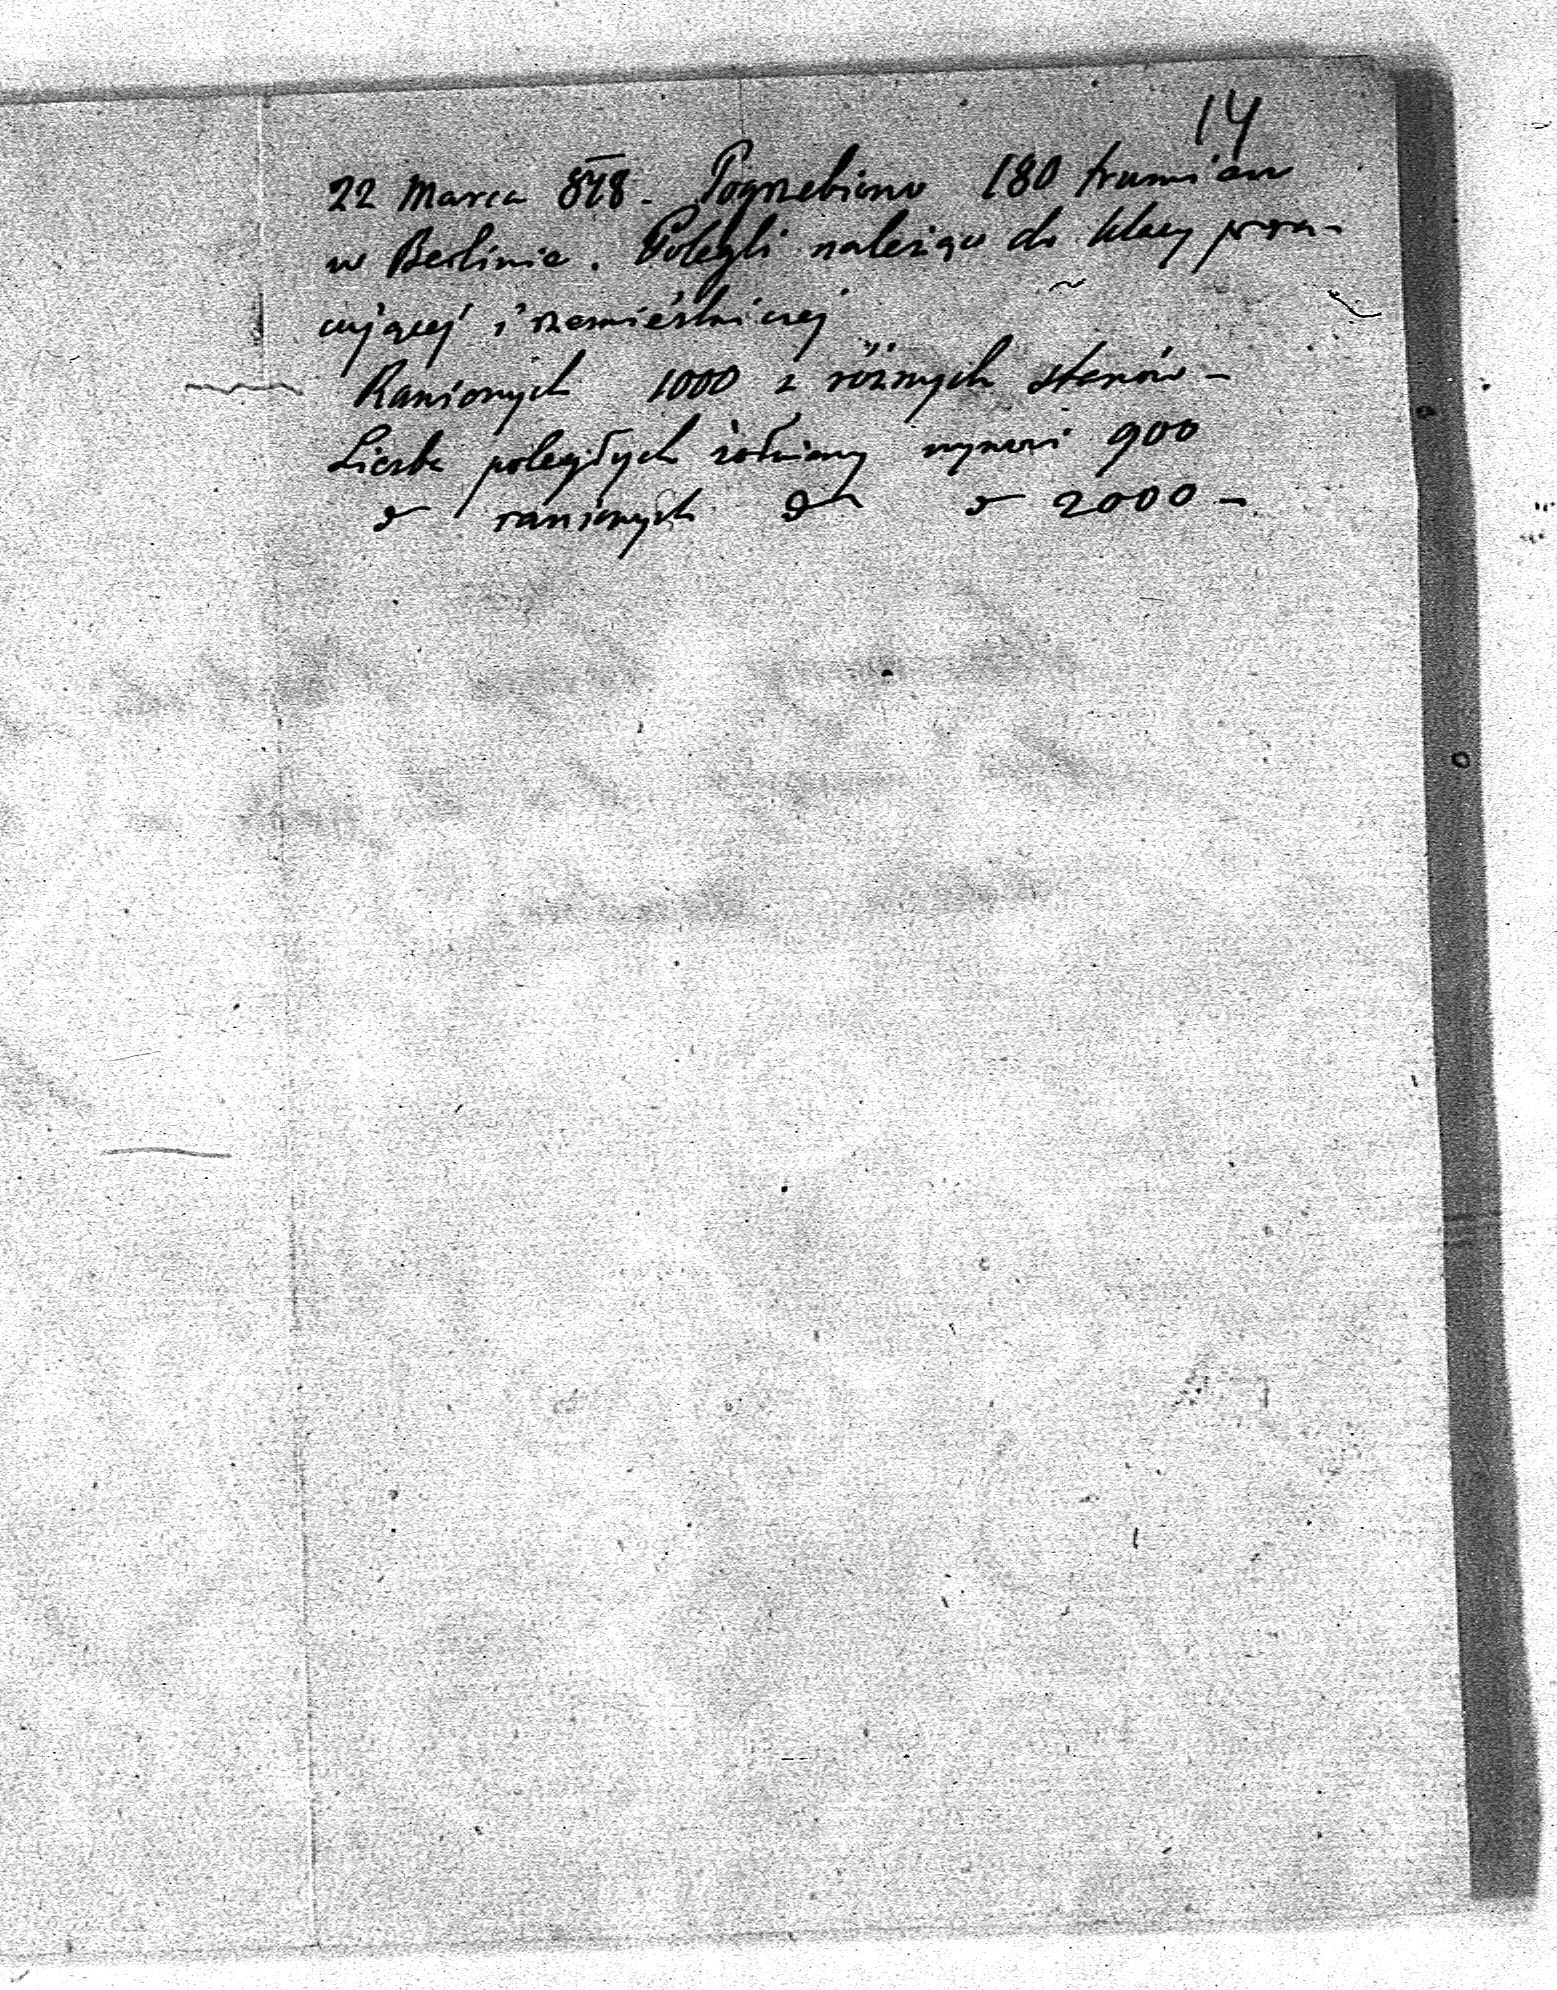 14
22 Marca 848. Pogrzebiono 180 trumien
w Berlinie. Polegli należą do klasy pra-
cującej i rzemieślniczej
Ranionych 1000 z różnych stanów –
Liczba poległych żołnierzy wynosi 900
d° ranionych d° d° 2000 –